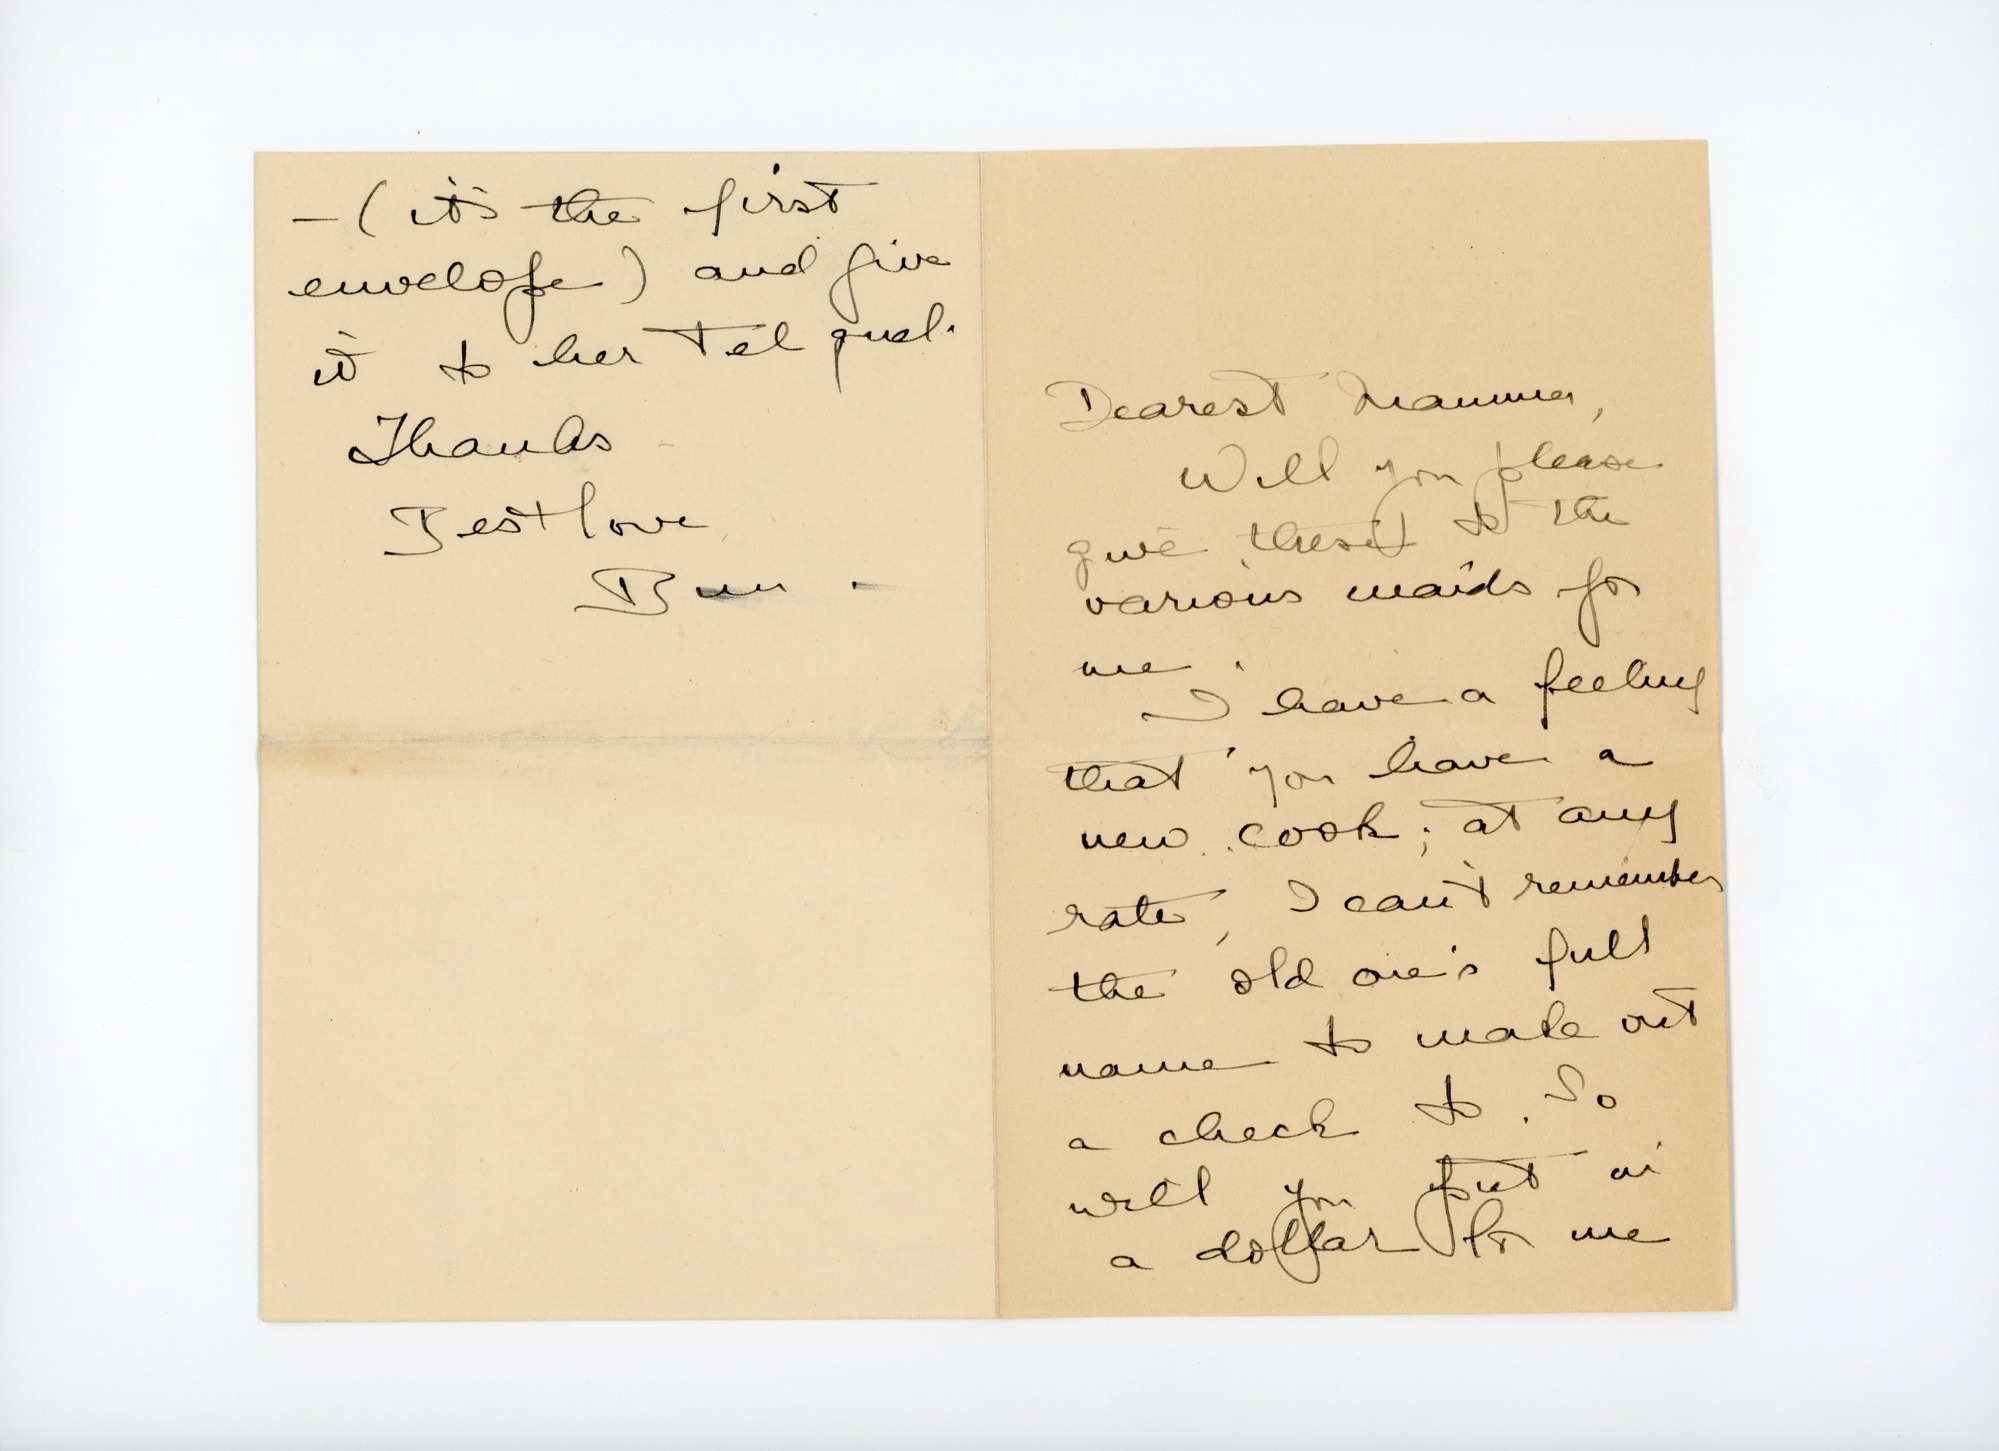 Dearest Mamma,
Will you please
give these to the
various maids for
me.
I have a feeling
that you have a
new cook; at any
rate, I can't remember
the old one's full
name to make out
a check to. So
will you put in
a dollar for me
—(it's the first
envelope) and give
it to her tel quel.
Thanks
Best love
Bun —